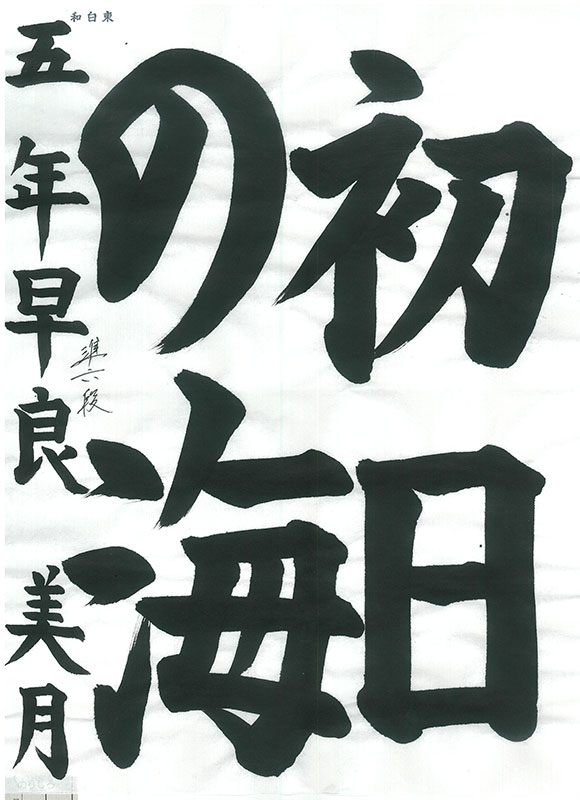 東白和
初日
の海
五年早良美月
準六段